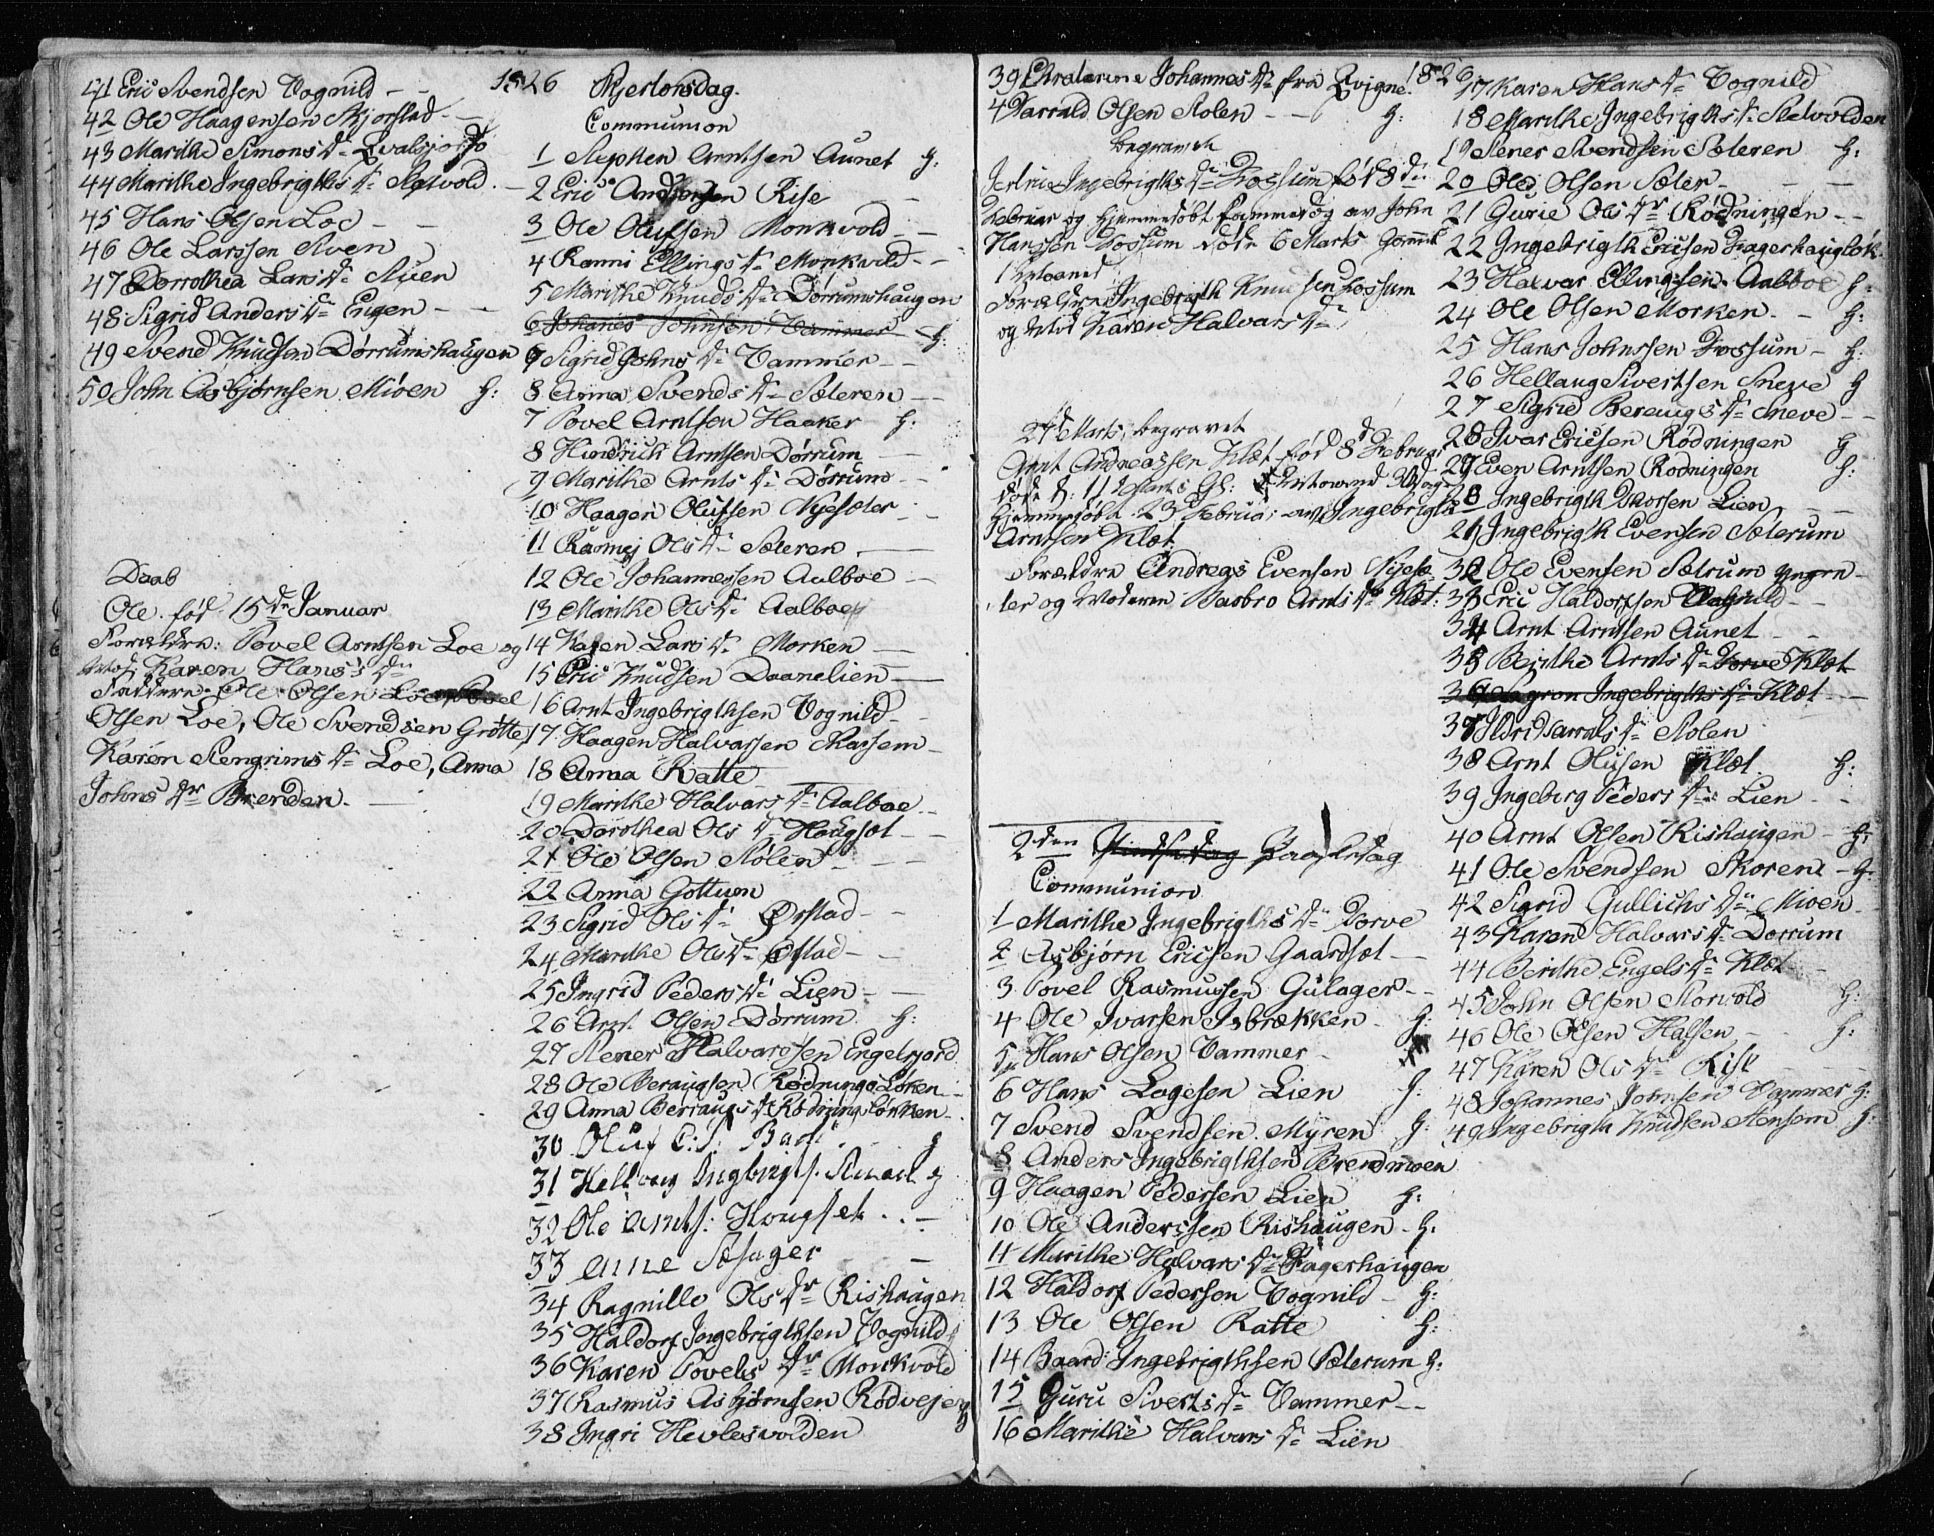 41 Eric Svendsen Vognild
42 Ole Haagensen Skjørstad
43 Marithe Simons Dr
44 Marithe Ingebrigths Dr Sletvold
45 Hans Olsen Loe
46 Ole Larssen Sven
47 Dorrothea Lars Dr
48 Sigrid Anders Dr Engen
49 Svend Knudsen Dørrumshaugen
50 John Asbjørnsen Mioen H:
Daab
Ole fød 15de Januar
Forældre: Povel Arntsen Loe og
Karen Hans's Dr
Faddere Ole Olsen Loe Povel
Olsen Loe, Ole Svendsen Grøtte,
Karen Stengrims Dr Loe, Anna
Johns Dr Brenden
1826 Skjertorsdag
Communion
1 Stephen Arntsen Aunet H:
2 Eric Rise
3 Ole Olufsen Monkvold
4 Ranni Ellings Dr Monkvold
5 Marithe Knuds Dr Dørrumshaugen
6 Johanes Johnsen Vammer H:
6 Sigrid Johns Dr Vammer
8 Anna Svends Dr Sæteren
7 Povel Arntsen Haaker H:
8 Hindrich Arntsen Dørrum
9 Marithe Arnts Dr Dørrum
10 Haagen Olufsen Nyesæter
11 Rasmej Ols Dr Sæteren
12 Ole Johannessen Aalboe
13 Marithe Ols Dr Aalboe
14 Karen Lars Dr Morken
15 Eric Knudsen Daanelien
16 Arnt Ingebrigthsen Vognild
17 Haagen Halvarsen
18 Anna Ratte
19 Marithe Halvars Dr Aalboe
20 Dorothea Ols Dr Haugset
21 Ole Olsen Stølen
22 Anna Gottum
23 Sigrid Ols Dr Ørstad
24 Marithe Ols Dr
25 Ingrid Peders Dr Lien
26 Arnt Olsen Dørrum H:
27 Stener Halvarssen Engelsjord
28 Ole Beraugsen Rødningsløken
29 Anna Berraugs Dr Rødningsløkken
30 Oluf
31
32 Ole Arnts: Hougset
33 Anne Sæsager
34 Ragnille Ols Dr Rishaugen
35 Haldorf Ingebrigthsen Vognild
36 Karen Povels Dr Monkvold
37 Rasmus Asbjørnsen Rødvejen
38 Ingri Hevlesvolden
39 Johannes Dr fra Qvigne 1826
4 Harrald Olsen Stolen H:
Begravet
Ingebrigths Dr Fossum fød 8de
Februar og Hjemmedøbt av John
Hanssen Fossum døde 6 Marts
Ingebrigth Knudsen Fossum
og Karen Halvars Dr
27de Marts, begravet
Arnt Andreassen Klæt fød 8de Februar
døde d: 11 Marts
Hjemmedøbt 23 Februar av Ingebrigth
Arntsen Klæt
Forældre Andreas Evensen Nyesæ
ter og Moderen Barbro Arnts Dr Klæt:
2den Pindsedag Paaskedag
Communion
1 Marithe Ingebrigths Dr Torve
2 Asbjørn Ericsen Gaardsæt
3 Povel Rasmussen Gulager
4 Ole Ivarsen Isbrækken H:
5 Hans Olsen Vammer
6 Hans Lagesen Lien H:
7 Svend Svendsen Myren H:
8 Anders Ingebrigthsen Brendmoen
9 Haagen Pedersen Lien H:
10 Ole Anderssen Rishaugen H:
11 Marithe Halvars Dr Fagerhaugen
12 Haldorf Pedersen Vognild H:
13 Ole Olsen Ratte H:
14 Baard Ingebrigthsen Sæterum H:
15 Guru Siverts Dr Vammer
16 Marithe Halvars Dr Lien
17 Karen Hans Dr Vognild
18 Marithe Ingebrigths Dr Sletvolden
19 Stener Svendsen Sæteren H:
20 Ole Olsen Sæter
21 Gurie Ols Dr Rødningen
22 Ingebrigth Ericsen Fagerhaugløk.
23 Halvar Ellingsen Aalboe H:
24 Ole Olsen Morken H:
25 Hans Johnssen Fossum H:
26 Hellaug Sivertsen Sneve H
27 Sigrid Beraugs Dr Sneve
28 Ivar Ericsen Rødningen H
29 Even Arntsen Rødningen H:
28 Ingebrigth Lien
29 Ingebrigth Evensen Sæterum
32 Ole Evensen Sætrum yngre
33 Eric Haldorfsen Vognild
34 Arnt Arntsen Aunet
35 Berithe Arnts Dr Torve Klæt
36 Ingebrigths Dr Klæt
37 Ildri Harrals Dr Stolen
38 Arnt Olufsen Klæt H:
39 Ingeborg Peders Dr Lien
40 Arnt Olsen Rishaugen H:
41 Ole Svendsen Skorem H:
42 Sigrid Gullichs Dr Mioen
43 Karen Halvars Dr Dørrum
44 Berithe Engels Dr Klæt
45 John Olsen Storvold H:
46 Ole Olsen Halsen H:
47 Karen Ols Dr Rise
48 Johannes Johnsen Vammer H:
49 Ingebrigth Knudsen Stensem H: